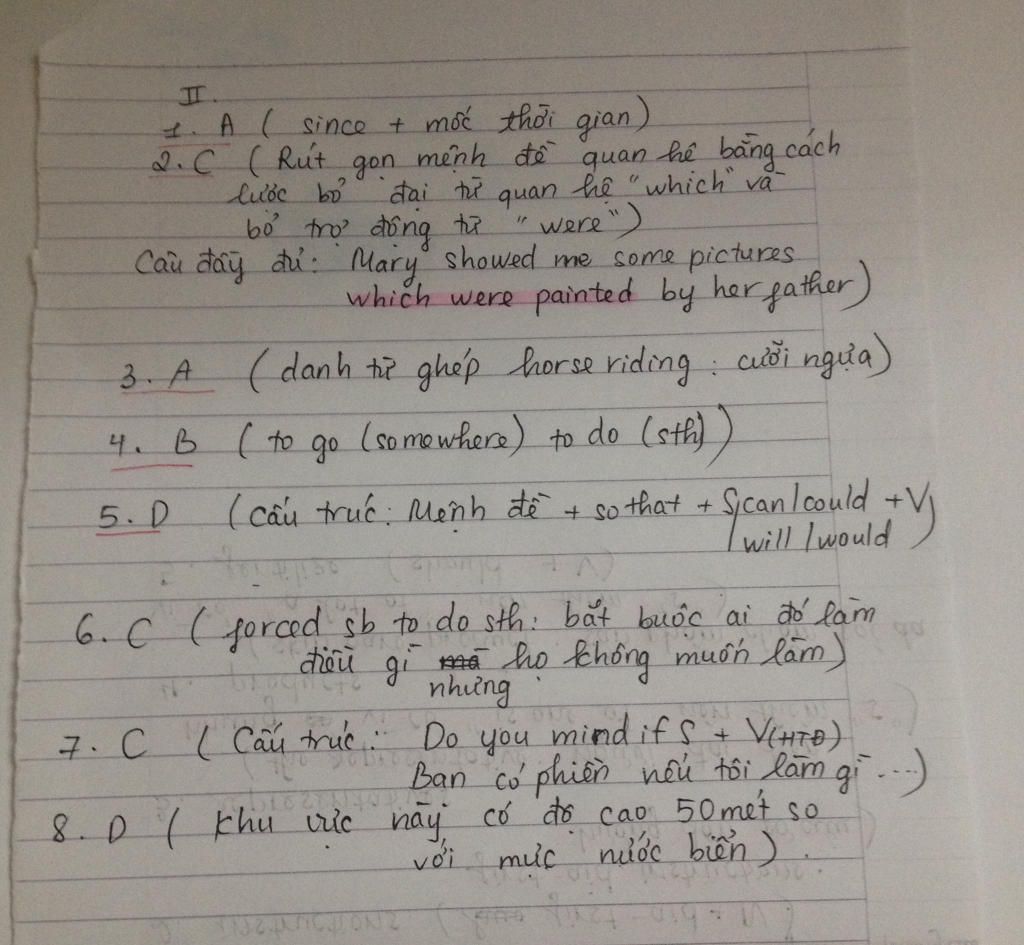 II.
1. A ( since + mốc thời gian)
2. C ( Rút gọn mệnh đề quan hệ bằng cách
lược bỏ đại từ quan hệ "which" và
bỏ trợ động từ "were")
Câu đầy đủ: Mary showed me some pictures
which were painted by her father)
3. A ( danh từ ghép horse riding : cưỡi ngựa)
4. B ( to go (somewhere) to do (sth) )
5. D ( cấu trúc: Mệnh đề + so that + S can/could + V)
/will/would
6. C ( forced sb to do sth: bắt buộc ai đó làm
điều gì họ không muốn làm)
nhưng
7. C ( Cấu trúc: Do you mind if S + V(HTĐ)
Bạn có phiền nếu tôi làm gì ...)
8. D ( khu vực này có độ cao 50 mét so
với mực nước biển) .